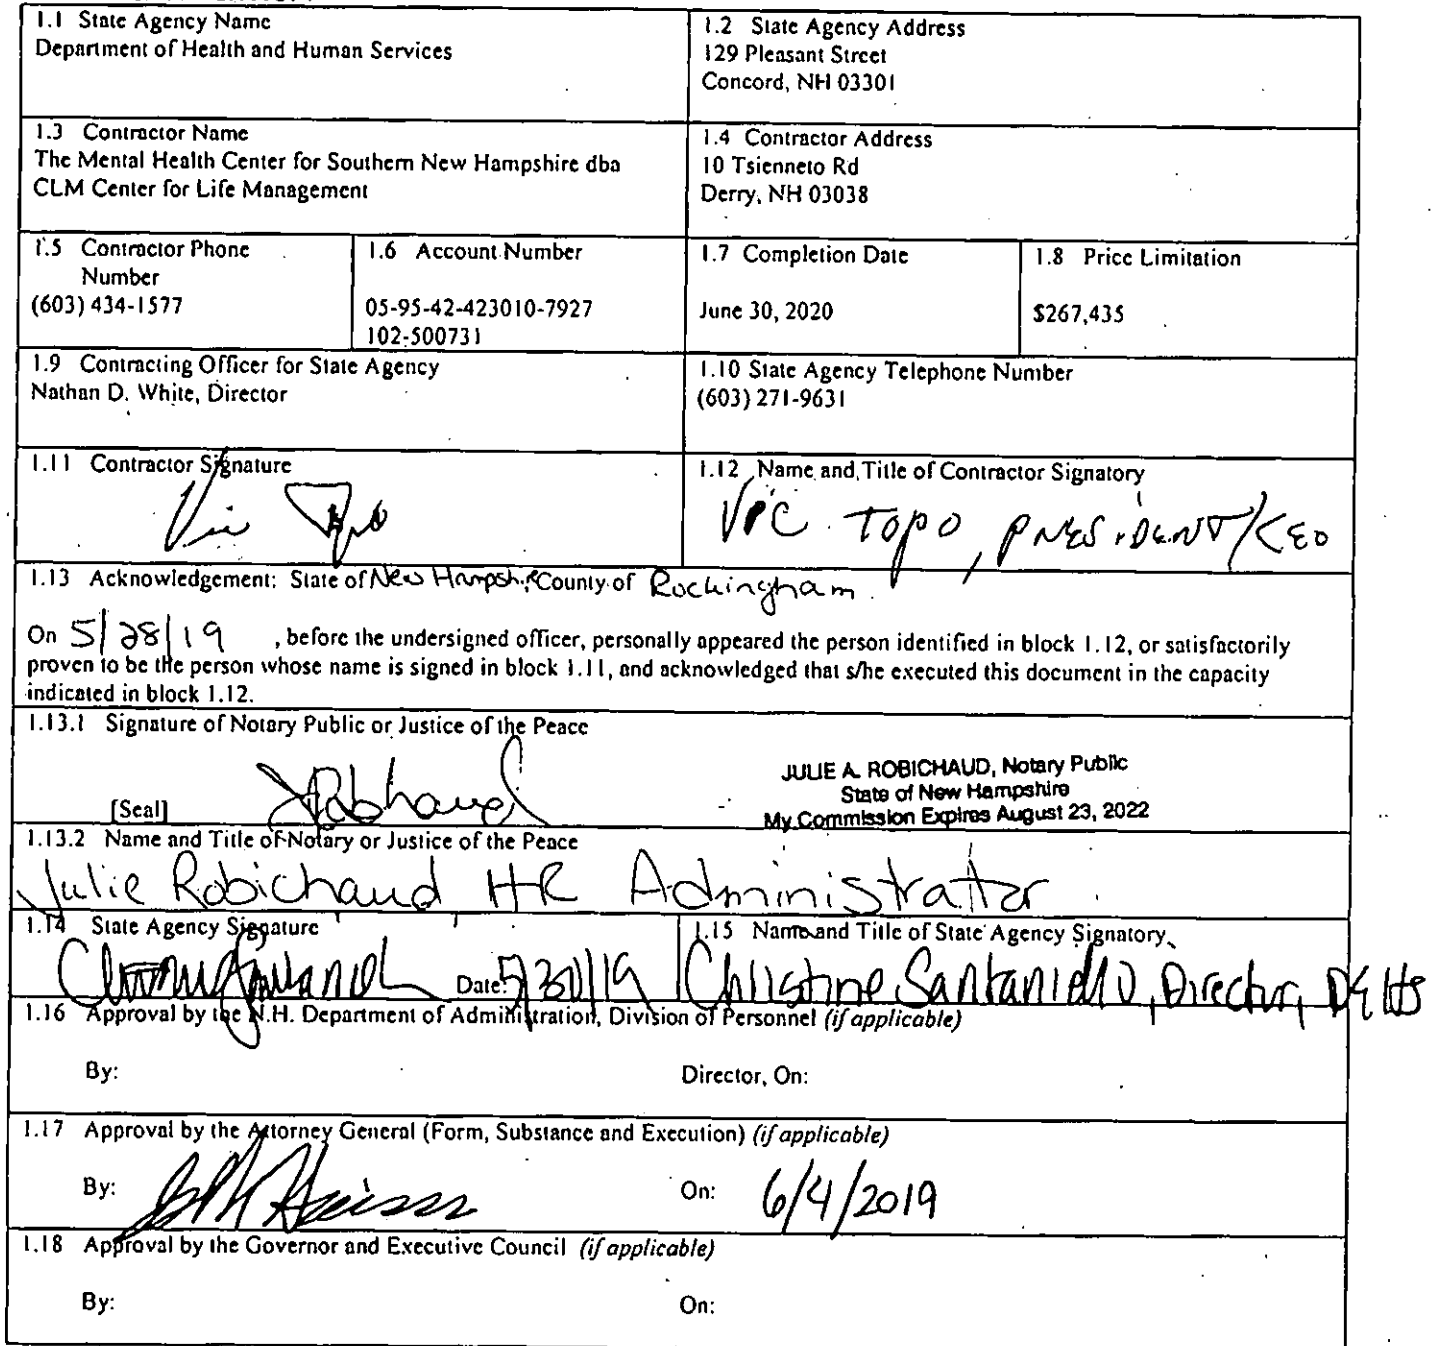 1.1 State Agency Name
Department of Health and Human Services
1.2 State Agency Address
129 Pleasant Street
Concord, NH 03301
1.3 Contractor Name
The Mental Health Center for Southern New Hampshire dba
CLM Center for Life Management
1.4 Contractor Address
10 Tsienneto Rd
Derry, NH 03038
1.5 Contractor Phone
Number
(603) 434-1577
1.6 Account Number
05-95-42-423010-7927
102-500731
1.7 Completion Date
June 30, 2020
1.8 Price Limitation
$267,435
1.9 Contracting Officer for State Agency
Nathan D. White, Director
1.10 State Agency Telephone Number
(603) 271-9631
1.11 Contractor Signature
Vic Topo
1.12 Name and Title of Contractor Signatory
Vic Topo, President/CEO
1.13 Acknowledgement: State of New Hampshire County of Rockingham
On 5/28/19 , before the undersigned officer, personally appeared the person identified in block 1.12, or satisfactorily
proven to be the person whose name is signed in block 1.11, and acknowledged that s/he executed this document in the capacity
indicated in block 1.12.
1.13.1 Signature of Notary Public or Justice of the Peace
[Seal]
JULIE A. ROBICHAUD, Notary Public
State of New Hampshire
My Commission Expires August 23, 2022
1.13.2 Name and Title of Notary or Justice of the Peace
Julie Robichaud HR Administrator
1.14 State Agency Signature
Date: 5/30/19
1.15 Name and Title of State Agency Signatory
Christine Santaniello, Director,
1.16 Approval by the N.H. Department of Administration, Division of Personnel (if applicable)
By: Director, On:
1.17 Approval by the Attorney General (Form, Substance and Execution) (if applicable)
By: On: 6/4/2019
1.18 Approval by the Governor and Executive Council (if applicable)
By: On: